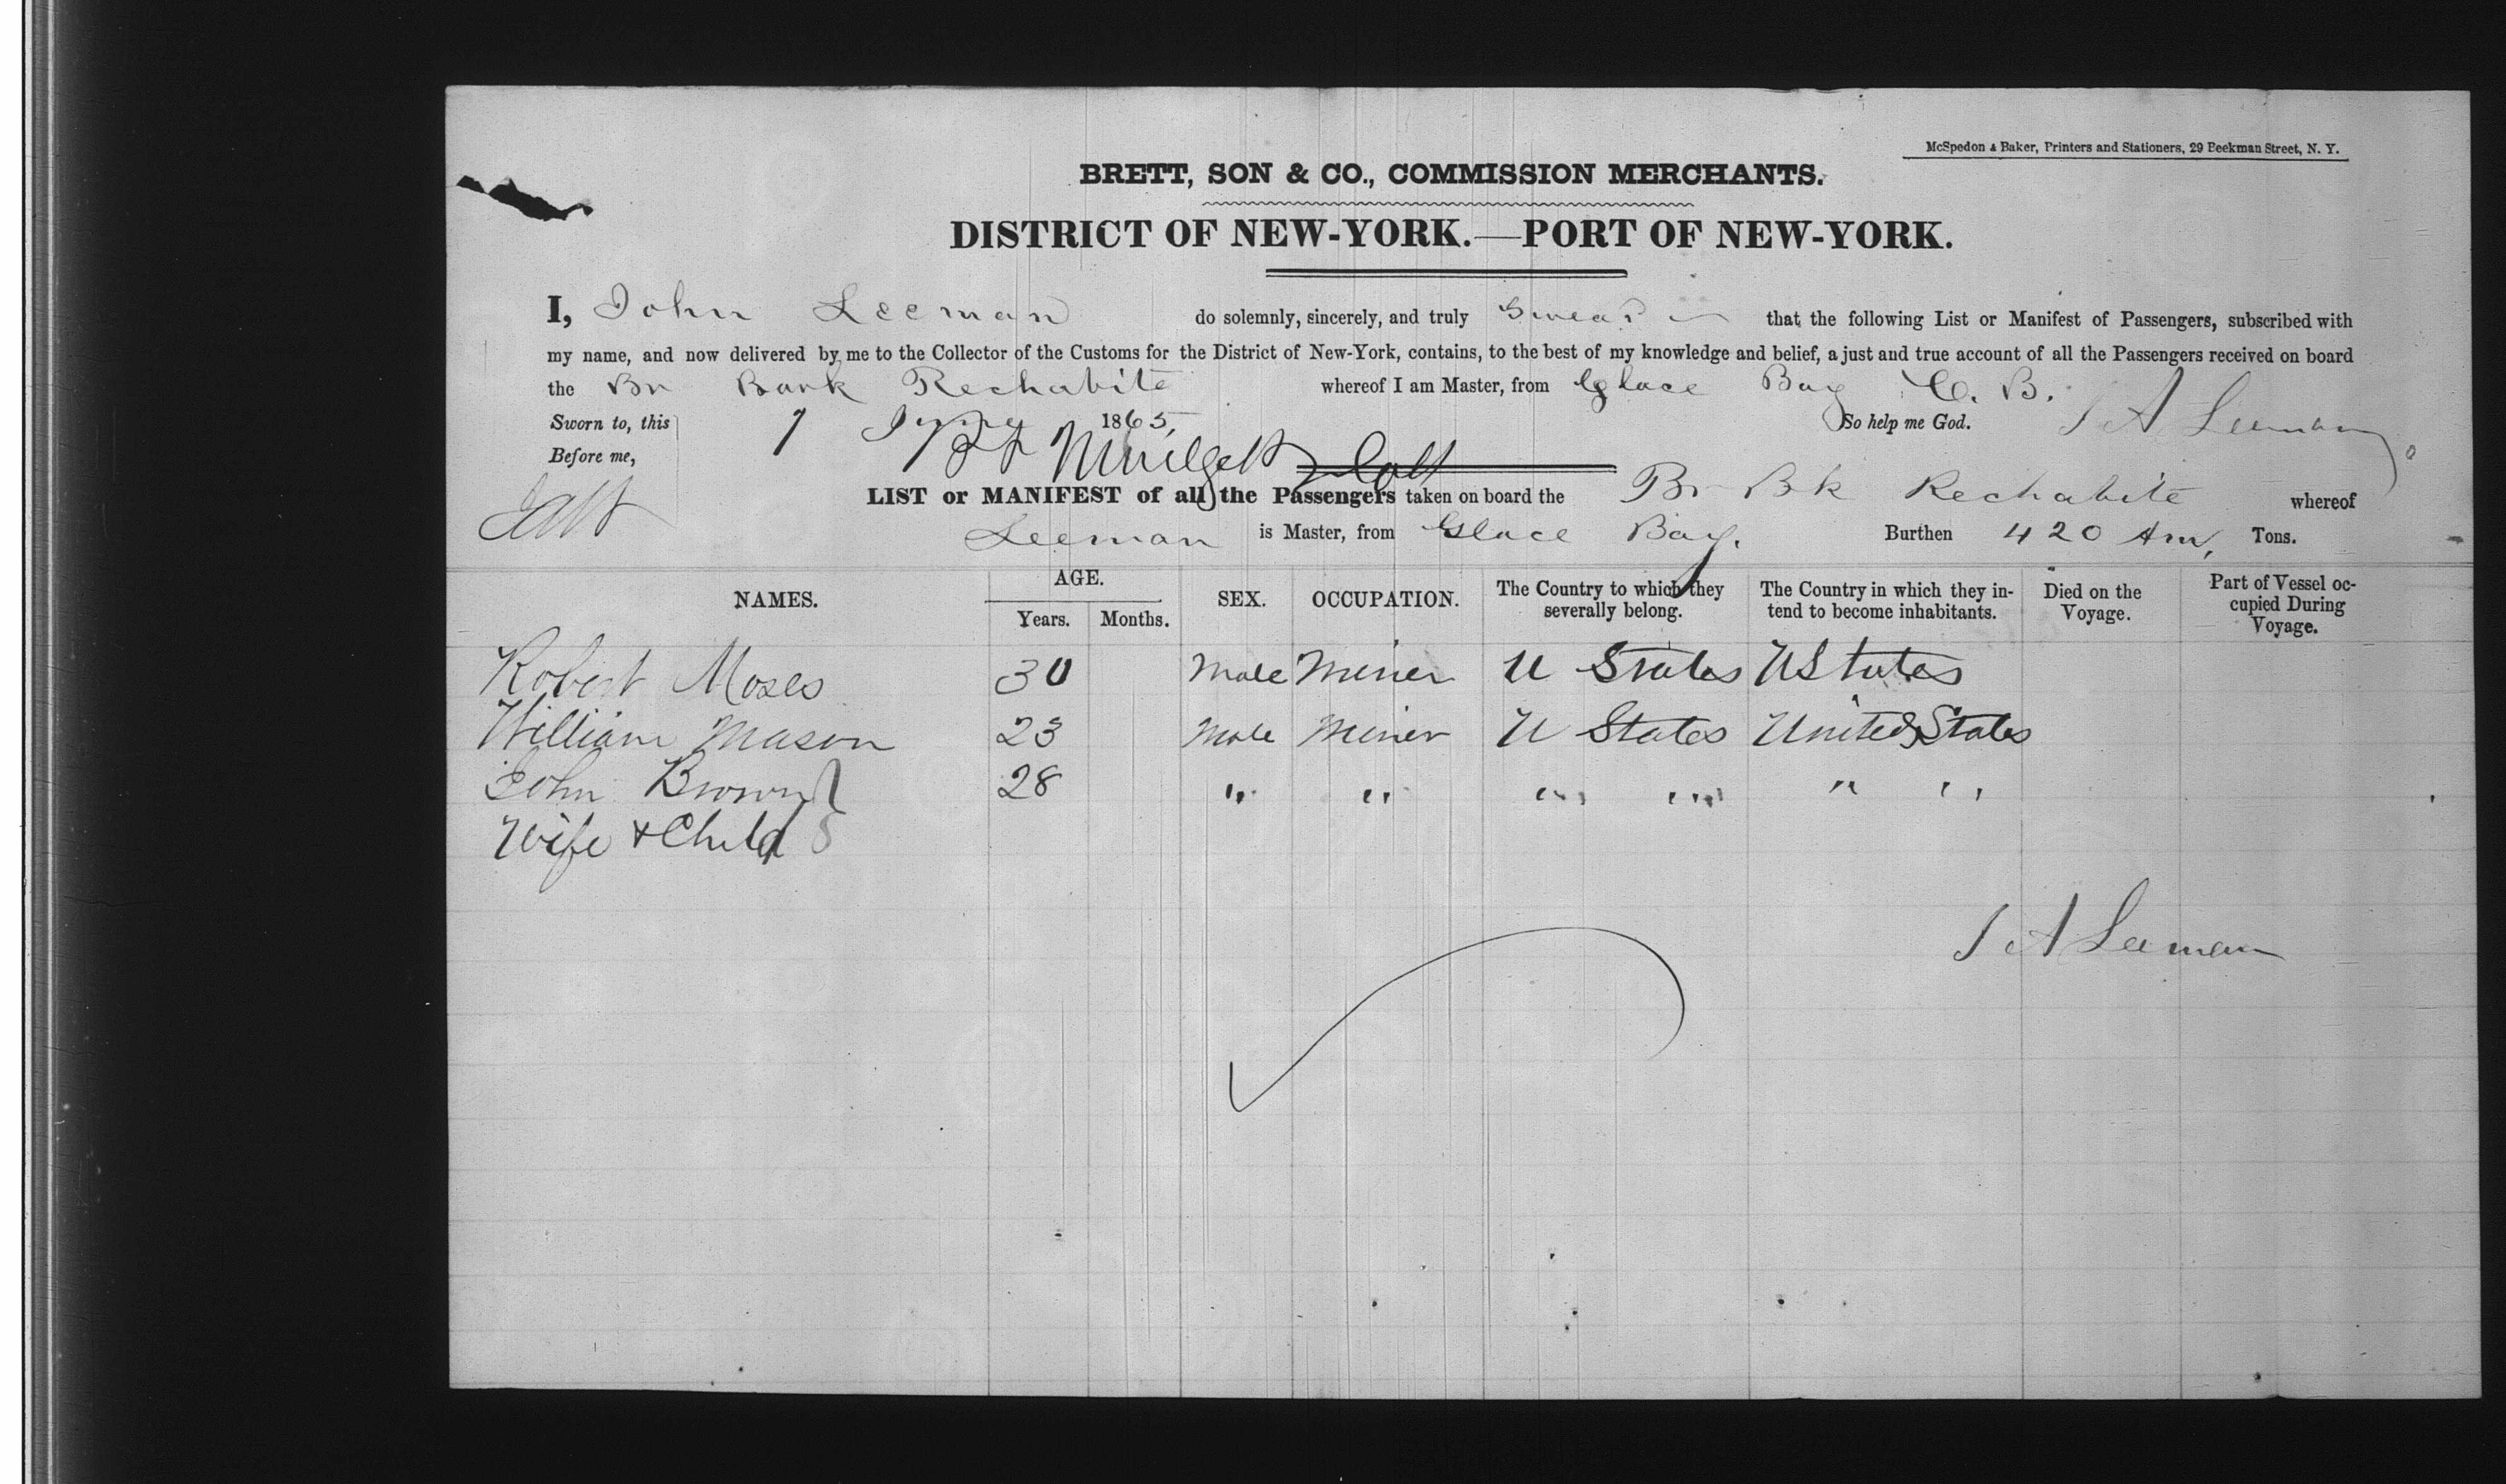 McSpedon & Baker, Printers and Stationers, 29 Beekman Street, N. Y.
BRETT, SON & CO., COMMISSION MERCHANTS.
DISTRICT OF NEW-YORK.—PORT OF NEW-YORK.
I, John Leeman do solemnly, sincerely, and truly Swear that the following List or Manifest of Passengers, subscribed with
my name, and now delivered by me to the Collector of the Customs for the District of New-York, contains, to the best of my knowledge and belief, a just and true account of all the Passengers received on board
the Br Bark Rechabite whereof I am Master, from Glace Bay C. B.
Sworn to, this 7 1865, So help me God. J A Leeman
Before me,
LIST or MANIFEST of all the Passengers taken on board the Br Bk Rechabite whereof
Leeman is Master, from Glace Bay. Burthen 420 Am, Tons.
NAMES. AGE. Years. Months. SEX. OCCUPATION. The Country to which they severally belong. The Country in which they in- tend to become inhabitants. Died on the Voyage. Part of Vessel oc- cupied During Voyage.
Robert Moses 30 Male Miner U States U States
William Mason 23 Male Miner U States United States
John Brown 28 " " " " " "
Wife & Child
J A Leeman